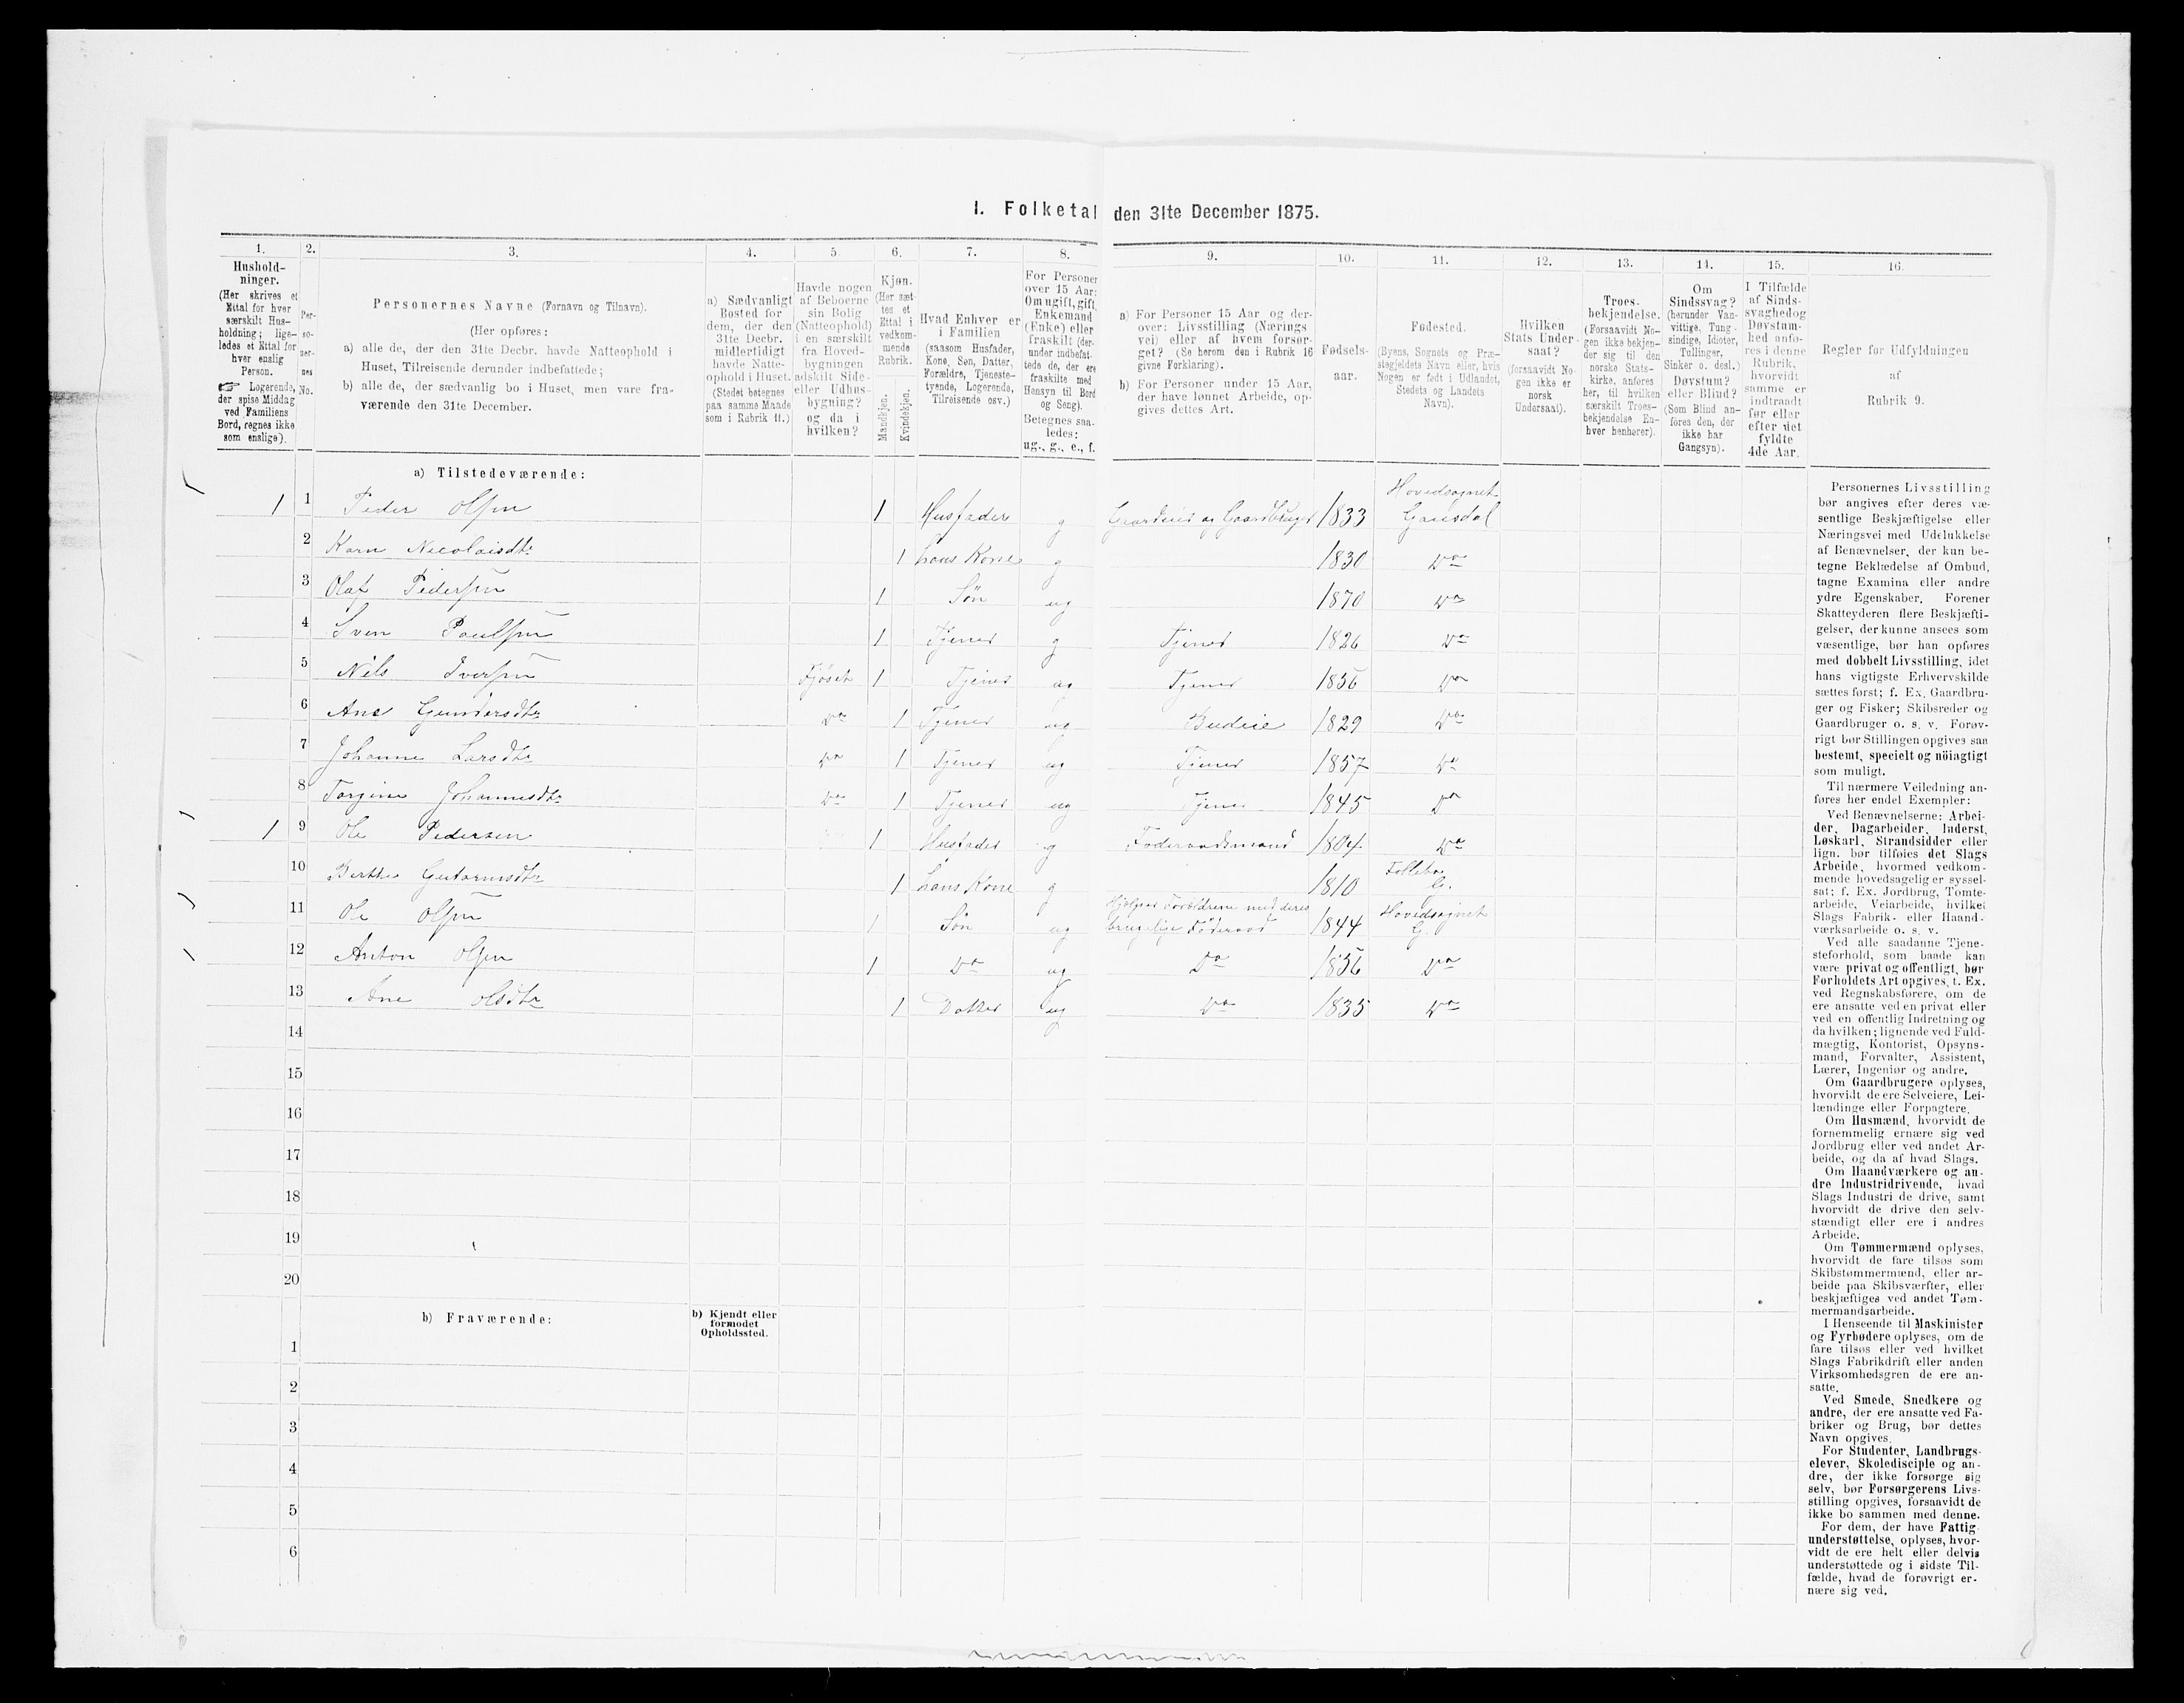 I. Folketal den 31te December 1875.
1.
Hushold-
ninger.
(Her skrives et
Ettal for hver
særskilt Hus-
holdning; lige-
ledes et Ettal for
hver enslig
Person.
☞ Logerende,
der spise Middag
ved Familiens
Bord, regnes ikke
som enslige).
2.
Per-
so-
ner-
nes
No.
3.
Personernes Navne (Fornavn og Tilnavn).
(Her opføres:
a) alle de, der den 31te Decbr. havde Natteophold i
Huset, Tilreisende derunder indbefattede;
b) alle de, der sædvanlig bo i Huset, men vare fra-
værende den 31te December.
4.
a) Sædvanligt
Bosted for
dem, der den
31te Decbr.
midlertidigt
havde Natte-
ophold i Huset.
(Stedet betegnes
paa samme Maade
som i Rubrik 11.)
5.
Havde nogen
af Beboerne
sin Bolig
(Natteophold)
i en særskilt
fra Hoved-
bygningen
adskilt Side-
eller Udhus-
bygning?
og da i
hvilken?
6.
Kjøn.
(Her sæt-
tes et
Ettal i
vedkom-
mende
Rubrik.
Mandkjøn.
Kvindekjøn.
7.
Hvad Enhver er
i Familien
(saasom Husfader,
Kone, Søn, Datter,
Forældre, Tjeneste-
tyende, Logerende,
Tilreisende osv.)
8.
For Personer
over 15 Aar:
Om ugift, gift,
Enkemand
(Enke) eller
fraskilt (der-
under indbefat-
tede de, der ere
fraskilte med
Hensyn til Bord
og Seng).
Betegnes saa-
ledes:
ug., g., e., f.
9.
a) For Personer 15 Aar og der-
over: Livsstilling (Nærings
vei) eller af hvem forsør-
get? (Se herom den i Rubrik 16
givne Forklaring).
b) For Personer under 15 Aar,
der have lønnet Arbeide, op-
gives dettes Art.
10.
Fødsels-
aar.
11.
Fødested.
(Byens, Sognets og Præ-
stegjeldets Navn eller, hvis
Nogen er født i Udlandet,
Stedets og Landets
Navn).
12.
Hvilken
Stats Under-
saat?
(forsaavidt No-
gen ikke er
norsk
Undersaat).
13.
Troes-
bekjendelse.
(Forsaavidt No-
gen ikke bekjen-
der sig til den
norske Stats-
kirke, anføres
her, til hvilken
særskilt Troes-
bekjendelse En-
hver henhører).
14.
Om
Sindssvag?
(herunder Van-
vittige, Tung-
sindige, Idioter,
Tullinger,
Sinker o. desl.)
Døvstum?
eller Blind?
(Som Blind an-
føres den, der
ikke har
Gangsyn).
15.
I Tilfælde
af Sinds-
svaghedog
Døvstum-
hed anfø-
res i denne
Rubrik,
hvorvidt
samme er
indtraadt
før eller
efter det
fyldte
4de Aar.
16.
Regler for Udfyldningen
af
Rubrik 9.
a) Tilstedeværende:
1 1 Peder Olsen 1 Husfader g Gaardeier og Gaardbruger 1833 Hovedsognet Gausdal
2 Karn Nicolaisdtr 1 hans Kone g 1830 Do
3 Olaf Pedersen 1 Søn ug 1870 Do
4 Sven Paulsen 1 Tjener g Tjener 1826 Do
5 Nils Iversen Fjøset 1 Tjener ug Tjener 1856 Do
6 Ane Gundersdtr Do 1 Tjener ug Budeie 1829 Do
7 Johanne Larsdtr Do 1 Tjener ug Tjener 1857 Do
8 Torgine Johannesdtr Do 1 Tjener ug Tjener 1845 Do
1 9 Ole Pedersen 1 Husfader g Føderaadsmand 1804 Do
10 Berthe Guttormsdtr 1 hans Kone g 1810 Follebo G.
11 Ole Olsen 1 Søn ug Hjælper Forældrene med deres brugelige Føderaad 1844 Hovedsognet G.
12 Anton Olsen 1 Do ug Do 1856 Do
13 Ane Olsdtr 1 Datter ug Do 1835 Do
14
15
16
17
18
19
20
b) Fraværende:
b) Kjendt eller
formodet
Opholdssted.
1
2
3
4
5
6
Personernes Livsstilling
bør angives efter deres væ-
sentlige Beskjæftigelse eller
Næringsvei med Udelukkelse
af Benævnelser, der kun be-
tegne Beklædelse af Ombud,
tagne Examina eller andre
ydre Egenskaber. Forener
Skatteyderen flere Beskjæfti-
gelser, der kunne ansees som
væsentlige, bør han opføres
med dobbelt Livsstilling, idet
hans vigtigste Erhvervskilde
sættes først; f. Ex. Gaardbru-
ger og Fisker; Skibsreder og
Gaardbruger o. s. v. Forøv-
rigt bør Stillingen opgives saa
bestemt, specielt og nöiagtigt
som muligt.
Til nærmere Veiledning an-
føres her endel Exempler:
Ved Benævnelserne: Arbei-
der, Dagarbeider, Inderst,
Løskarl, Strandsidder eller
lign. bør tilføies det Slags
Arbeide, hvormed vedkom-
mende hovedsagelig er syssel-
sat; f. Ex. Jordbrug, Tomte-
arbeide, Veiarbeide, hvilket
Slags Fabrik- eller Haand-
værksarbeide o. s. v.
Ved alle saadanne Tjene-
steforhold, som baade kan
være privat og offentligt, bør
Forholdets Art opgives, f. Ex.
ved Regnskabsførere, om de
ere ansatte ved en privat eller
ved en offentlig Indretning og
da hvilken; lignende ved Fuld-
mægtig, Kontorist, Opsyns-
mand, Forvalter, Assistent,
Lærer, Ingeniør og andre.
Om Gaardbrugere oplyses,
hvorvidt de ere Selveiere, Lei-
lændinge eller Forpagtere.
Om Husmænd, hvorvidt de
fornemmelig ernære sig ved
Jordbrug eller ved andet Ar-
beide, og da af hvad Slags.
Om Haandværkere og an-
dre Industridrivende, hvad
Slags Industri de drive, samt
hvorvidt de drive den selv-
stændigt eller ere i andres
Arbeide.
Om Tømmermænd oplyses,
hvorvidt de fare tilsøs som
Skibstømmermænd, eller ar-
beide paa Skibsværfter, eller
beskjæftiges ved andet Tøm-
mermandsarbeide.
I Henseende til Maskinister
og Fyrbødere oplyses, om de
fare tilsøs eller ved hvilket
Slags Fabrikdrift eller anden
Virksomhedsgren de ere an-
satte.
Ved Smede, Snedkere og
andre, der ere ansatte ved Fa-
briker og Brug, bør dettes
Navn opgives.
For Studenter, Landbrugs-
elever, Skoledisciple og an-
dre, der ikke forsørge sig
selv, bør Forsørgerens Livs-
stilling opgives, forsaavidt de
ikke bo sammen med denne.
For dem, der have Fattig-
understøttelse, oplyses, hvor-
vidt de ere helt eller delvis
understøttede og i sidste Til-
fælde, hvad de forøvrigt er-
nære sig ved.